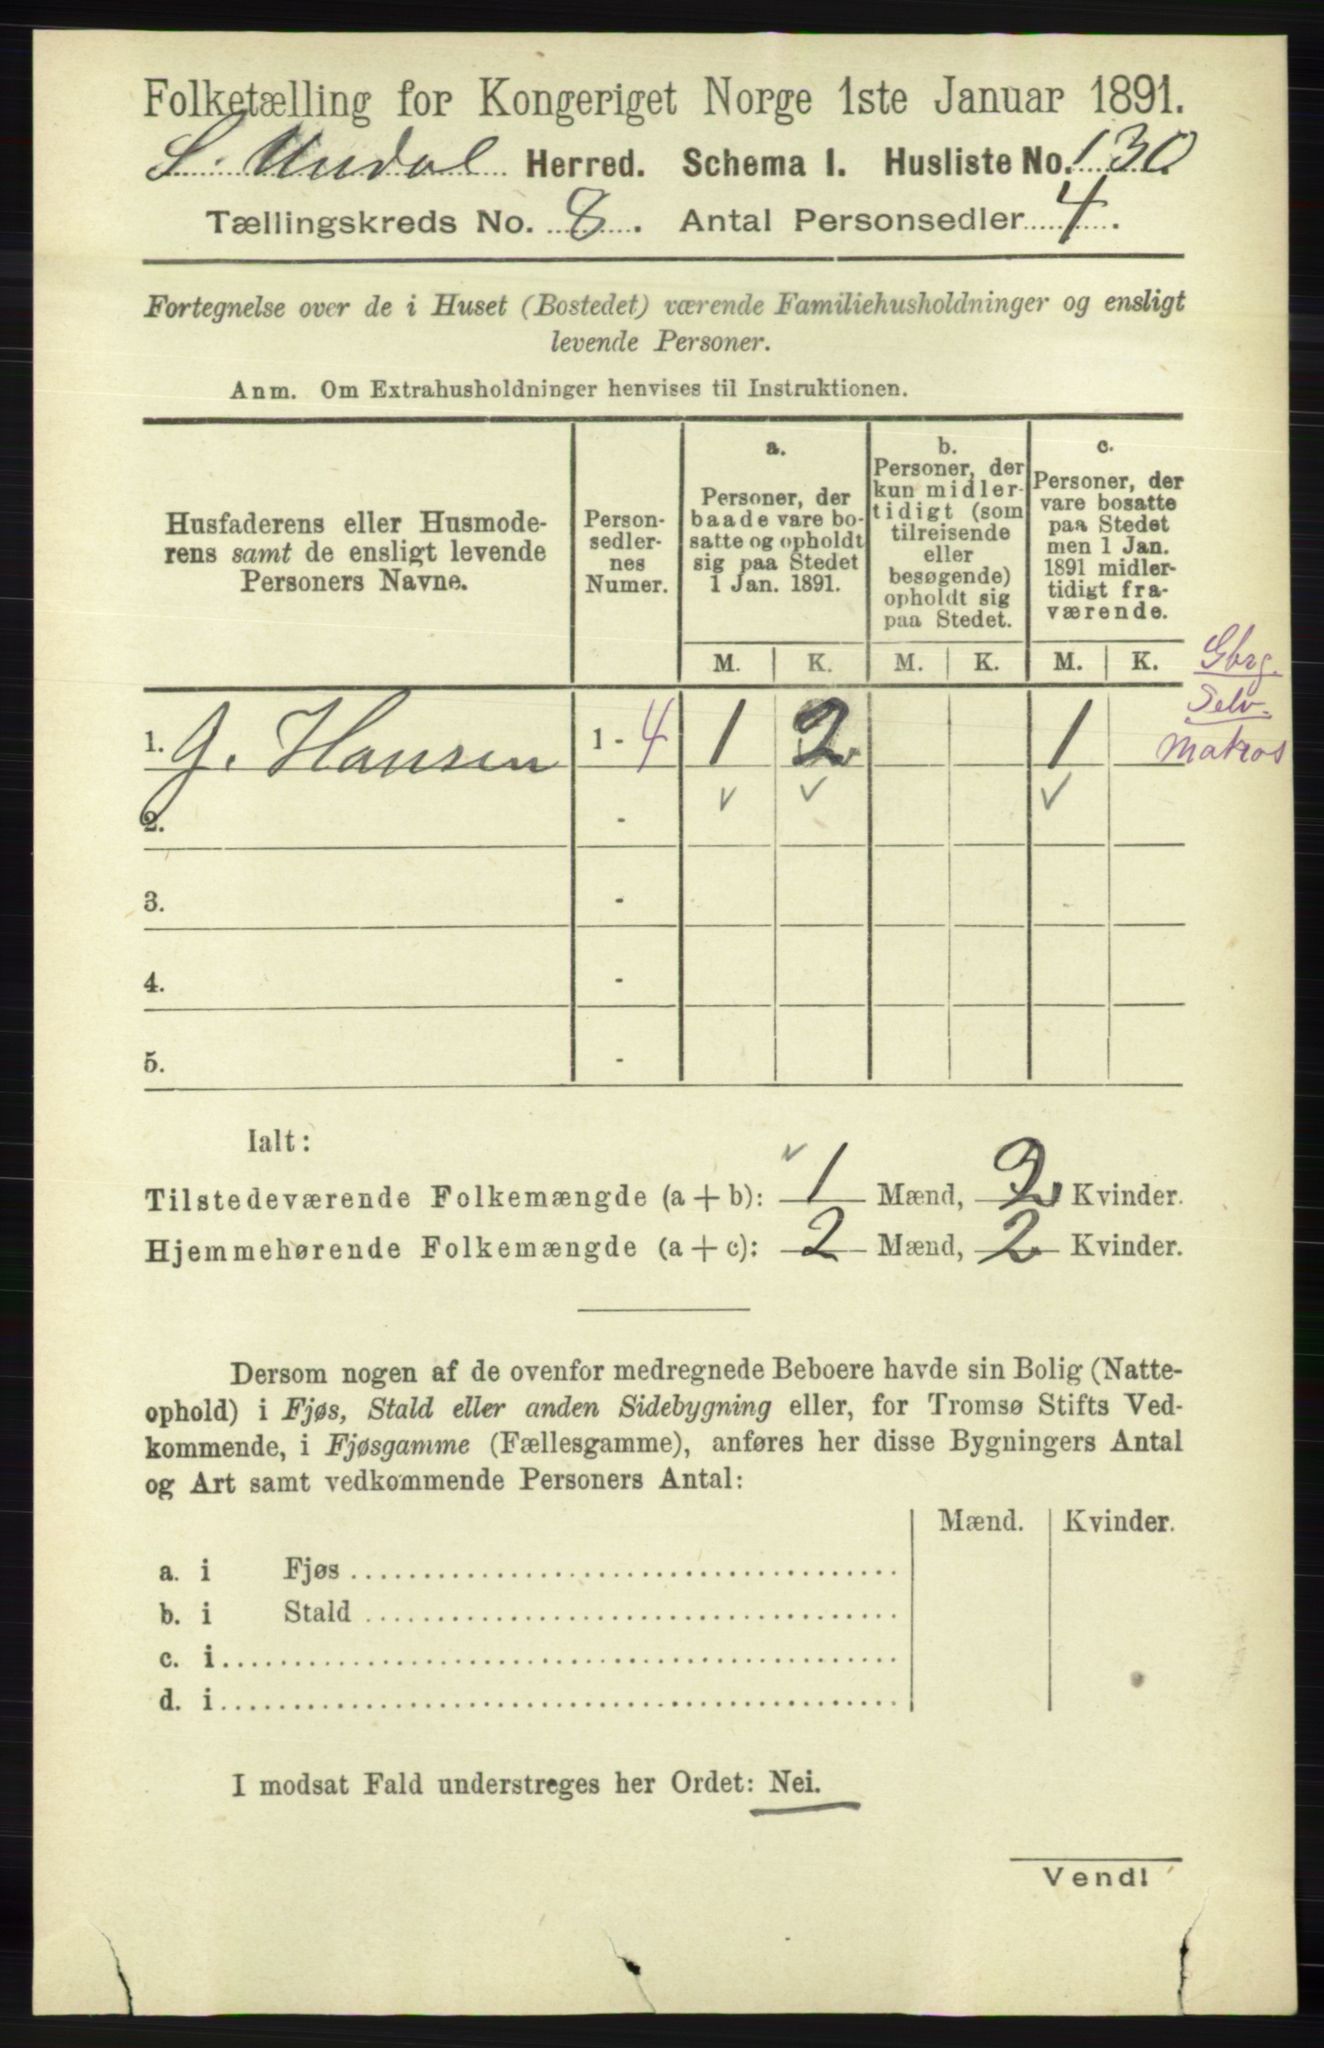 Folketælling for Kongeriget Norge 1ste Januar 1891.
S. Undal Herred. Schema I. Husliste No. 130
Tællingskreds No. 8. Antal Personsedler 4.
Fortegnelse over de i Huset (Bostedet) værende Familiehusholdninger og ensligt
levende Personer.
Anm. Om Extrahusholdninger henvises til Instruktionen.
Husfaderens eller Husmode-
rens samt de ensligt levende
Personers Navne.
Person-
sedler-
nes
Numer.
a.
Personer, der
baade vare bo-
satte og opholdt
sig paa Stedet
1 Jan. 1891.
b.
Personer, der
kun midler-
tidigt (som
tilreisende
eller
besøgende)
opholdt sig
paa Stedet.
c.
Personer, der
vare bosatte
paa Stedet
men 1 Jan.
1891 midler-
tidigt fra-
værende.
M. K. M. K. M. K.
Gbrg.
Selv.
Matros
1. G. Hansen 1 - 4 1 2 1
2. -
3. -
4. -
5. -
Ialt:
Tilstedeværende Folkemængde (a + b): 1 Mænd, 2 Kvinder.
Hjemmehørende Folkemængde (a + c): 2 Mænd, 2 Kvinder.
Dersom nogen af de ovenfor medregnede Beboere havde sin Bolig (Natte-
ophold) i Fjøs, Stald eller anden Sidebygning eller, for Tromsø Stifts Ved-
kommende, i Fjøsgamme (Fællesgamme), anføres her disse Bygningers Antal
og Art samt vedkommende Personers Antal:
Mænd. Kvinder.
a. i Fjøs
b. i Stald
c. i
d. i
I modsat Fald understreges her Ordet: Nei.
Vend!